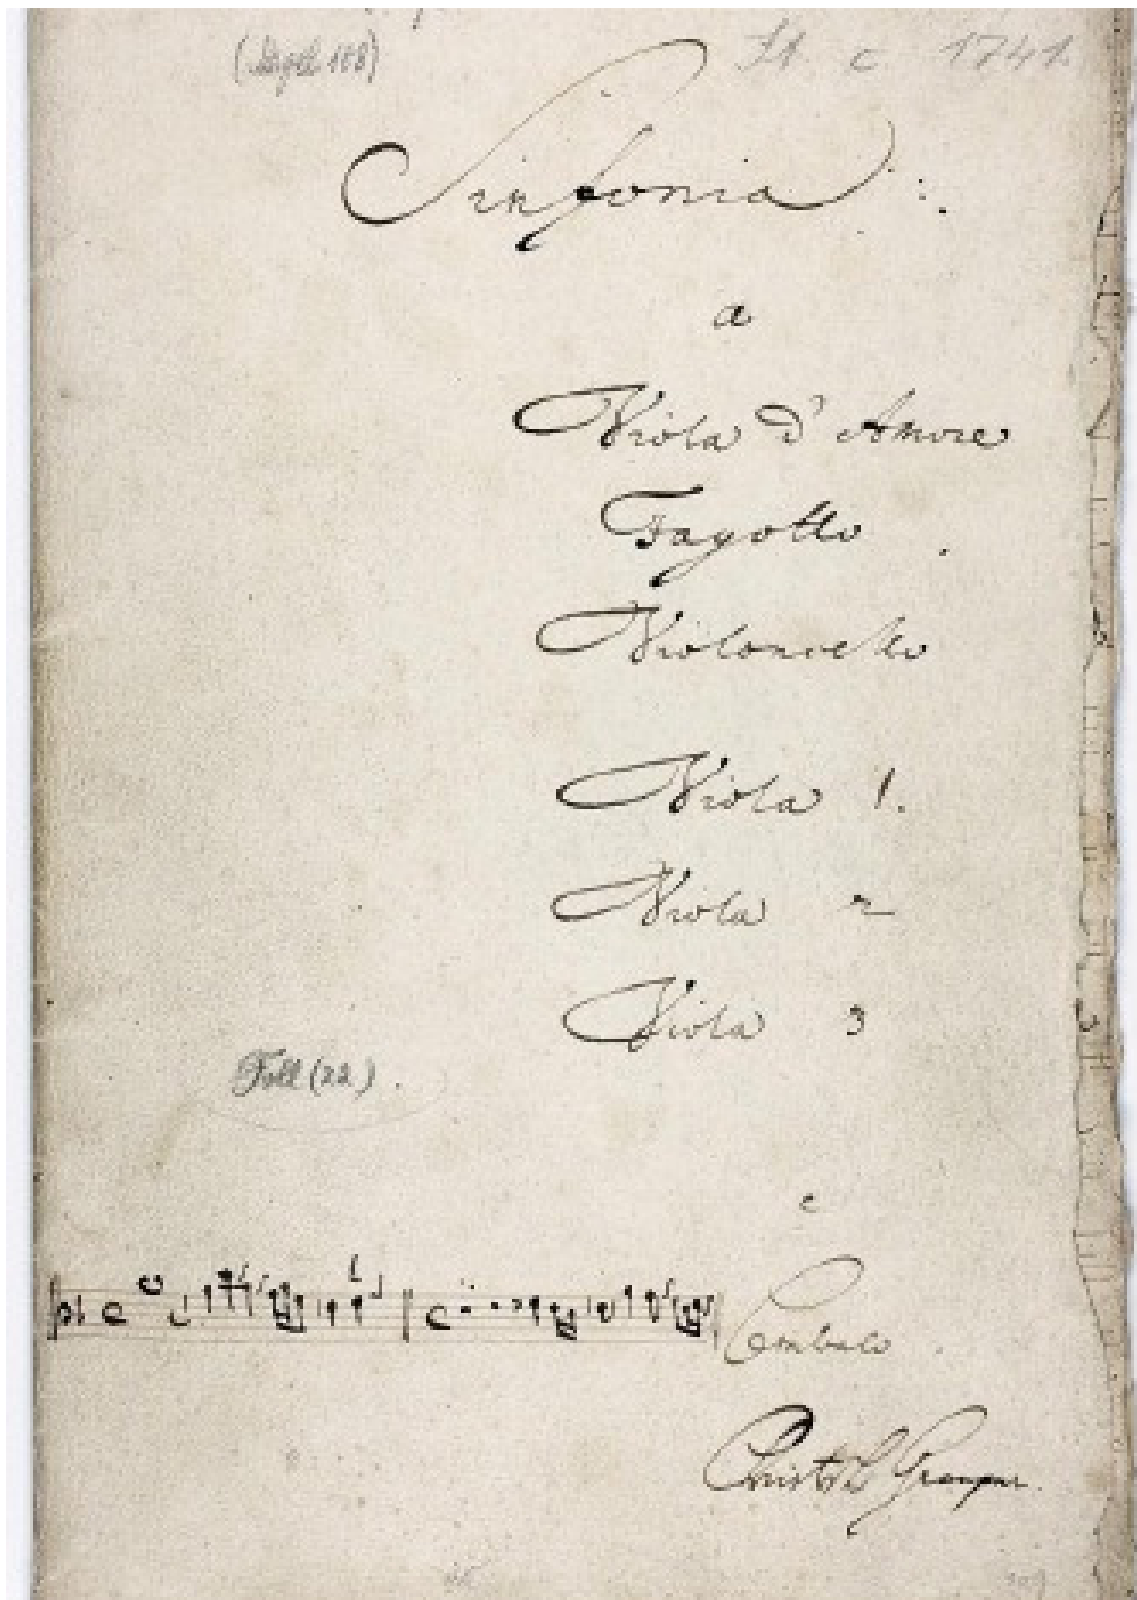 St. c 1741.
Sinfonia:
a
Viola d'Amore
Fagotto
Violoncello
Viola 1.
Viola 2
Viola 3
Foll (22).
e
Cembalo
Christoph Graupner.